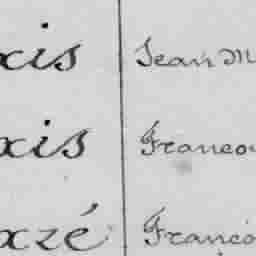 xis Jean M
xis Franco
xzé Franco